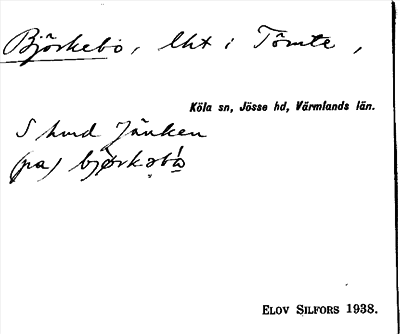 Björkebo, lht i Tömte,
Köla sn, Jösse hd, Värmlands län.
S
(pa) björkəbó
ELOV SILFORS 1938.